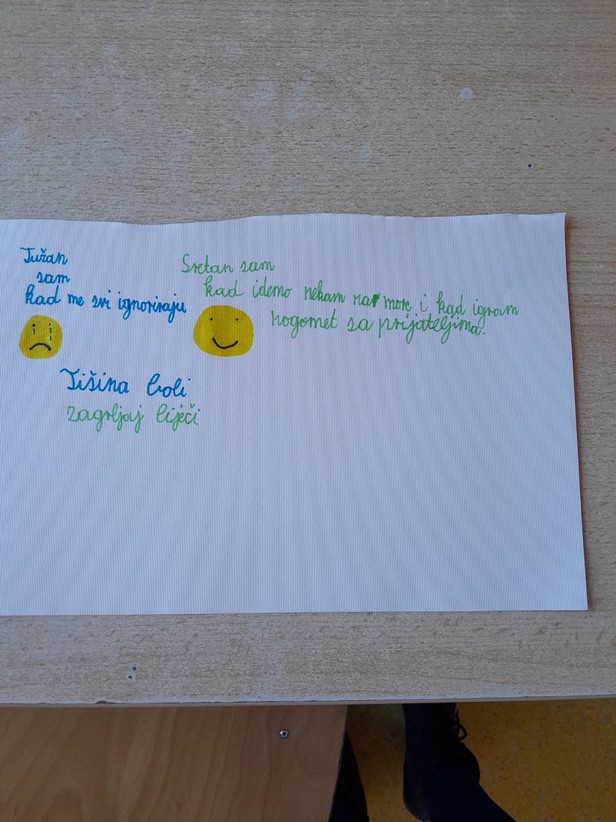 Tužan
sam
kad me svi ignoriraju
Sretan sam
kad idemo nekam na more i kad igram
nogomet sa prijateljima.
Tišina boli
zagrljaj liječi